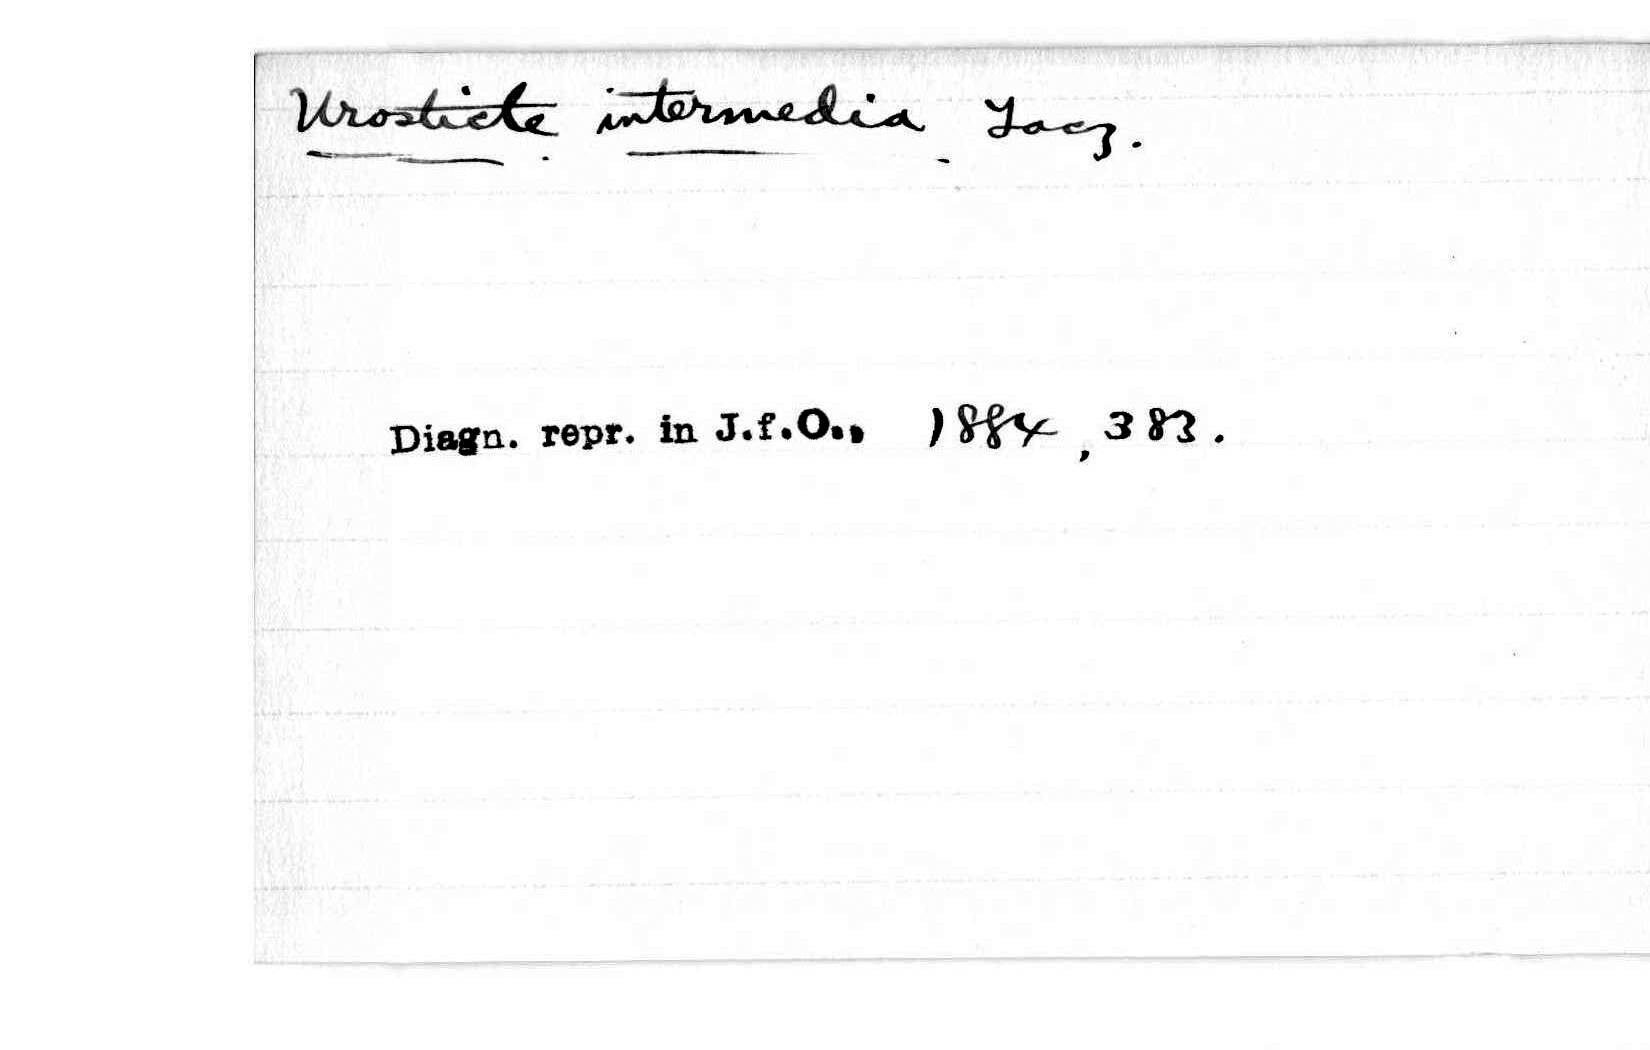 Urosticte intermedia Tacz.
Diagn. repr. in J.f.O., 1884, 383.